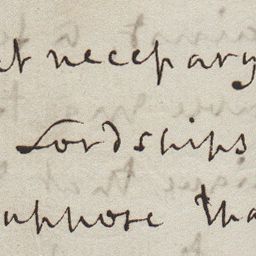 necessary
Lordships
suppose tha